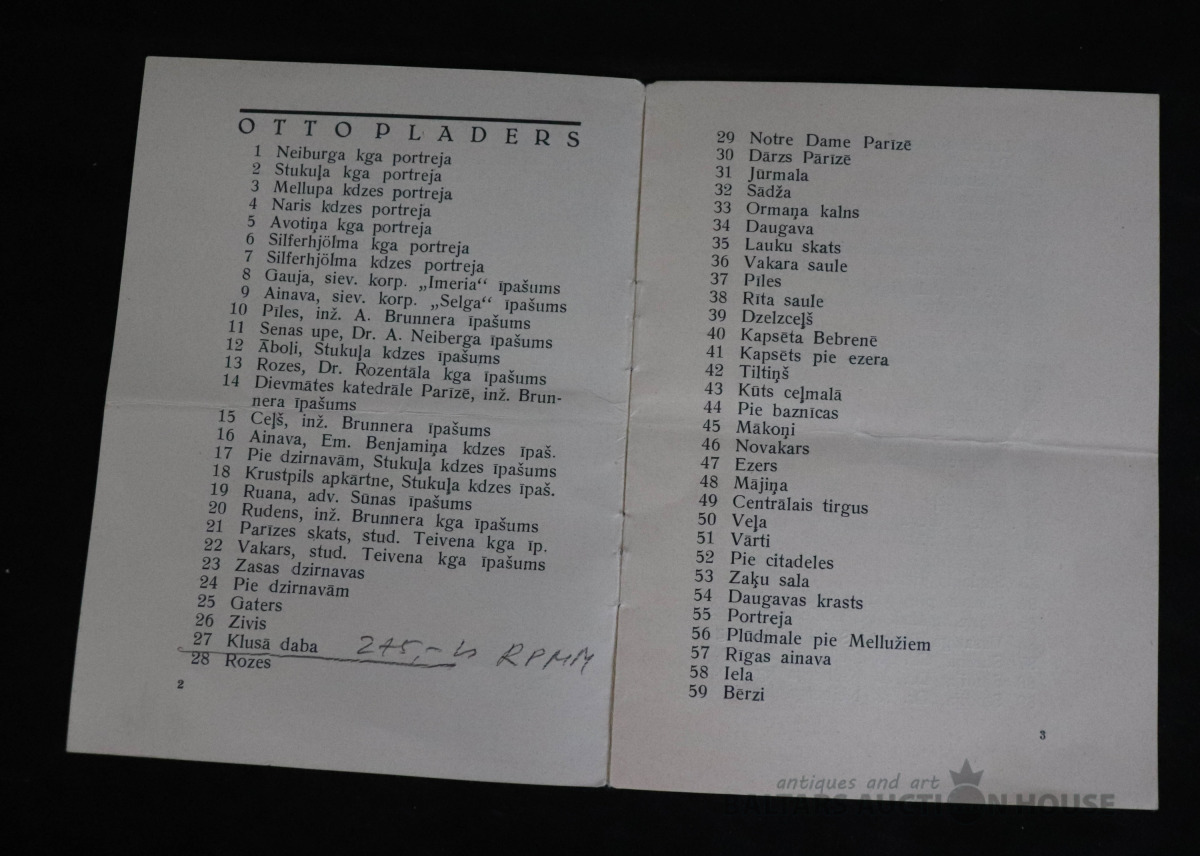 OTTO PLADERS
1 Neiburga kga portreja
2 Stukuļa kga portreja
3 Mellupa kdzes portreja
4 Naris kdzes portreja
5 Avotiņa kga portreja
6 Silferhjölma kga portreja
7 Silferhjölma kdzes portreja
8 Gauja, siev. korp. „Imeria“ īpašums
9 Ainava, siev. korp. „Selga“ īpašums
10 Pīles, inž. A. Brunnera īpašums
11 Senas upe, Dr. A. Neiberga īpašums
12 Āboli, Stukuļa kdzes īpašums
13 Rozes, Dr. Rozentāla kga īpašums
14 Dievmātes katedrāle Parīzē, inž. Brun-
nera īpašums
15 Ceļš, inž. Brunnera īpašums
16 Ainava, Em. Benjamiņa kdzes īpaš.
17 Pie dzirnavām, Stukuļa kdzes īpašums
18 Krustpils apkārtne, Stukuļa kdzes īpaš.
19 Ruana, adv. Sūnas īpašums
20 Rudens, inž. Brunnera kga īpašums
21 Parīzes skats, stud. Teivena kga īp.
22 Vakars, stud. Teivena kga īpašums
23 Zasas dzirnavas
24 Pie dzirnavām
25 Gaters
26 Zivis
27 Klusā daba 275,- Ls RPMM
28 Rozes
2
29 Notre Dame Parīzē
30 Dārzs Pārīzē
31 Jūrmala
32 Sādža
33 Ormaņa kalns
34 Daugava
35 Lauku skats
36 Vakara saule
37 Pīles
38 Rīta saule
39 Dzelzceļš
40 Kapsēta Bebrenē
41 Kapsēts pie ezera
42 Tiltiņš
43 Kūts ceļmalā
44 Pie baznīcas
45 Mākoņi
46 Novakars
47 Ezers
48 Mājiņa
49 Centrālais tirgus
50 Veļa
51 Vārti
52 Pie citadeles
53 Zaķu sala
54 Daugavas krasts
55 Portreja
56 Plūdmale pie Mellužiem
57 Rīgas ainava
58 Iela
59 Bērzi
3
antiques and art
BALTARS AUCTION HOUSE